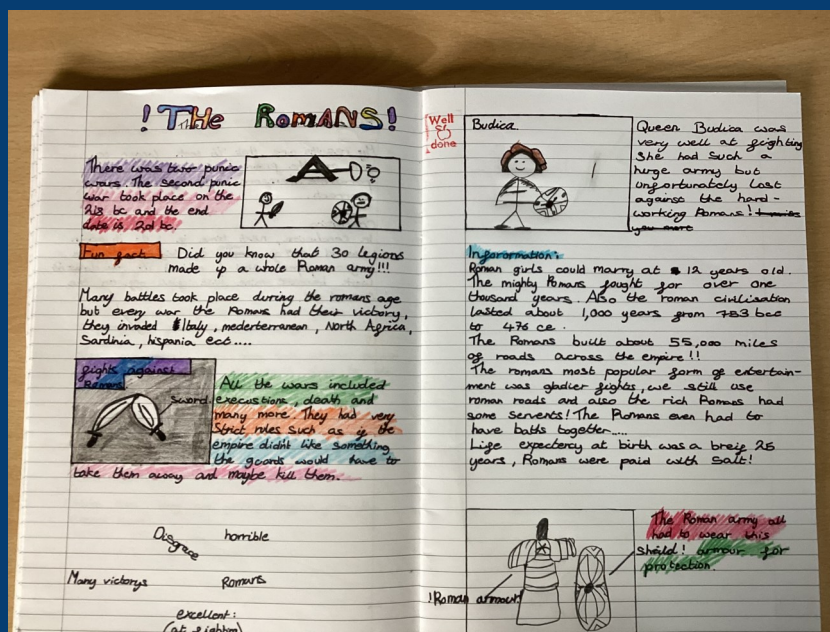 !THe RoMANS!
There was two punic
wars. The second punic
war took place on the
218 bc and the end
date is 201 bc.
Fun fact
Did you know that 30 legions
made up a whole Roman army!!!
Many battles took place during the romans age
but every war the Romans had their victory,
they invaded Italy, mederterranean, North Africa,
Sardinia, hispania ect....
fights against
Romans
Sword
All the wars included
execustions, death and
many more. They had very
Strict rules such as if the
empire didn't like something
the guards would have to
take them away and maybe kill them.
Disgrace
horrible
Many victorys
Romans
excellent:
(at fighting)
Well
done
Budica
Queen Budica was
very well at fighting
She had such a
huge army but
unfortunately lost
against the hard-
working Romans!
Inforormation:
Roman girls could marry at 12 years old.
The mighty Romans fought for over one
thousand years. Also the roman civilisation
lasted about 1,000 years from 753 bce
to 476 ce.
The Romans built about 55,000 miles
of roads across the empire!!
The romans most popular form of entertain-
ment was gladier fights, we still use
roman roads and also the rich Romans had
some servents! The Romans even had to
have baths together....
Life expectery at birth was a breif 25
years, Romans were paid with Salt!
!Roman armour!
The Roman army all
had to wear this
sheild! armour for
protection.